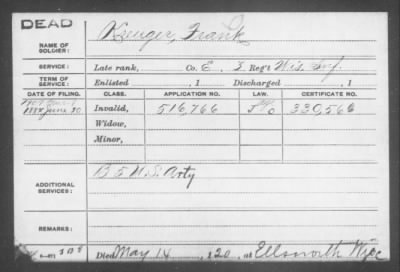 DEAD
NAME OF SOLDIER: Krueger, Frank
SERVICE: Late rank, Co. E, 3 Reg't Wis. Inf.
TERM OF SERVICE: Enlisted , 1 Discharged , 1
DATE OF FILING. CLASS. APPLICATION NO. LAW. CERTIFICATE NO.
June 30 Invalid, 516,766 330,566
Widow,
Minor,
ADDITIONAL SERVICES: B 5 U.S. Arty
REMARKS:
Died May 14, 1920, at Ellsworth Wisc